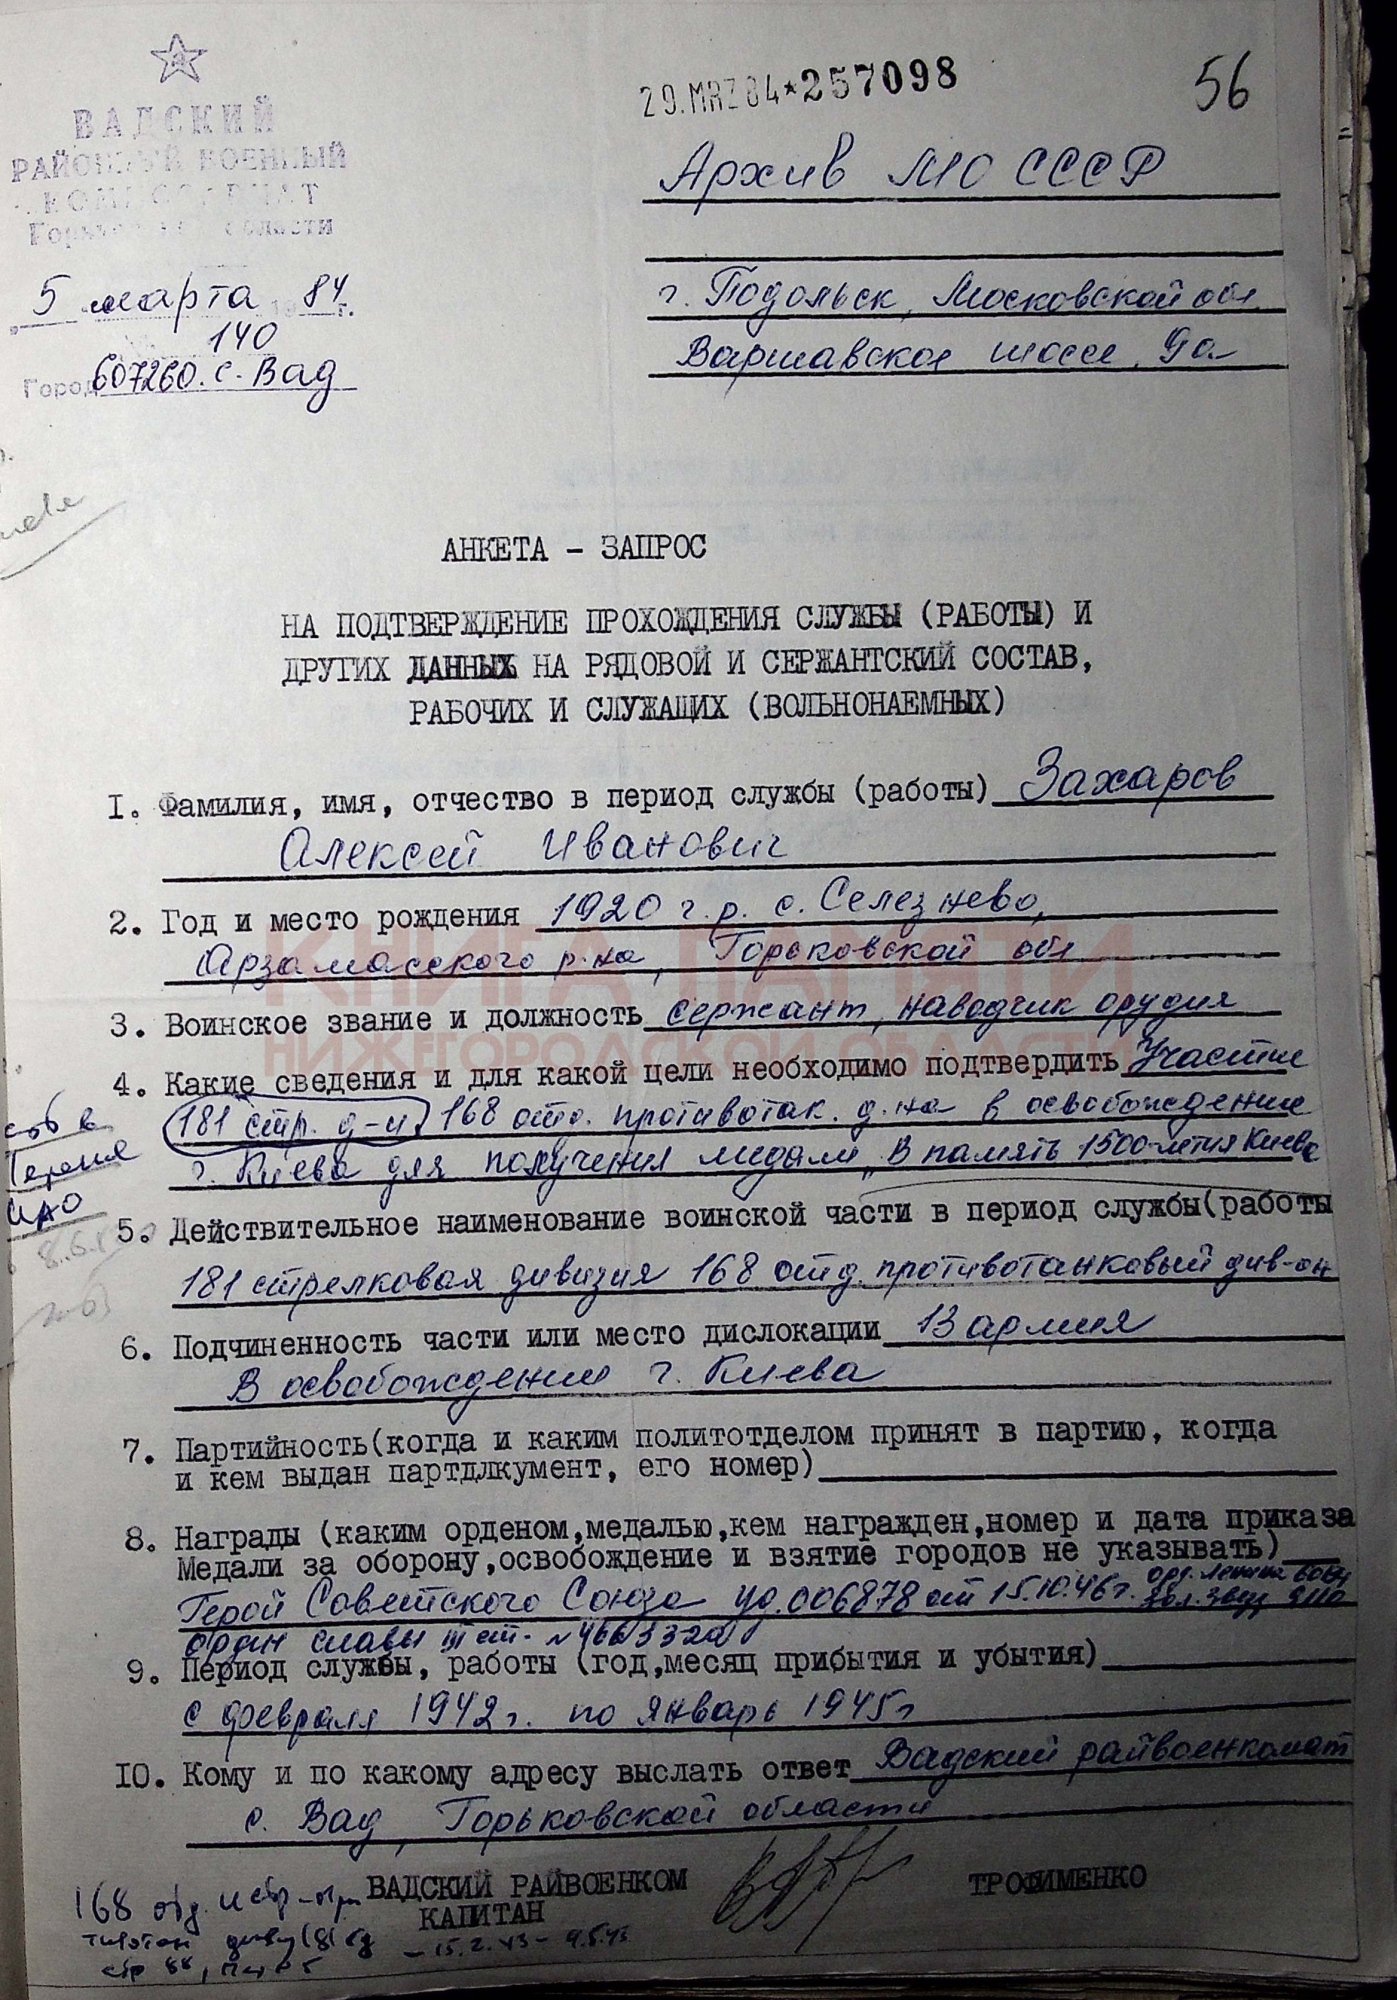 29.MRZ84*257098
56
ВАДСКИЙ
РАЙОННЫЙ ВОЕННЫЙ
КОМИССАРИАТ
Горьковской области
5 марта 1984г.
140
Город 607260. с. Вад
Архив МО СССР
г. Подольск, Московской обл.
Варшавское шоссе, 9а
АНКЕТА - ЗАПРОС
НА ПОДТВЕРЖДЕНИЕ ПРОХОЖДЕНИЯ СЛУЖБЫ (РАБОТЫ) И
ДРУГИХ ДАННЫХ НА РЯДОВОЙ И СЕРЖАНТСКИЙ СОСТАВ,
РАБОЧИХ И СЛУЖАЩИХ (ВОЛЬНОНАЕМНЫХ)
I. Фамилия, имя, отчество в период службы (работы) Захаров
Алексей Иванович
2. Год и место рождения 1920 г.р. с. Селезнево,
Арзамасского р-на, Горьковской обл
КНИГА ПАМЯТИ
3. Воинское звание и должность сержант, наводчик орудия
НИЖЕГОРОДСКОЙ ОБЛАСТИ
4. Какие сведения и для какой цели необходимо подтвердить Участие
181 стр. д-и 168 отд. противотак. д-на в освобождение
г. Киева для получения медали „В память 1500-летия Киева
5. Действительное наименование воинской части в период службы(работы
181 стрелковая дивизия 168 отд. противотанковый див-он
6. Подчиненность части или место дислокации 13 армия
В освобождении г. Киева
7. Партийность(когда и каким политотделом принят в партию, когда
и кем выдан партдлкумент, его номер)
8. Награды (каким орденом,медалью,кем награжден,номер и дата приказа
Медали за оборону,освобождение и взятие городов не указывать)
Герой Советского Союза уд.006878 от 15.10.46г. орд. Ленина
Зол. Звезд
орден славы III ст. №
9. Период службы, работы (год,месяц прибытия и убытия)
с февраля 1942г. по январь 1945г
10. Кому и по какому адресу выслать ответ Вадский райвоенкомат
с. Вад, Горьковской области
ВАДСКИЙ РАЙВОЕНКОМ
КАПИТАН
ТРОФИМЕНКО
168 отд. истр-
- 15.2.43 - 9.5.45